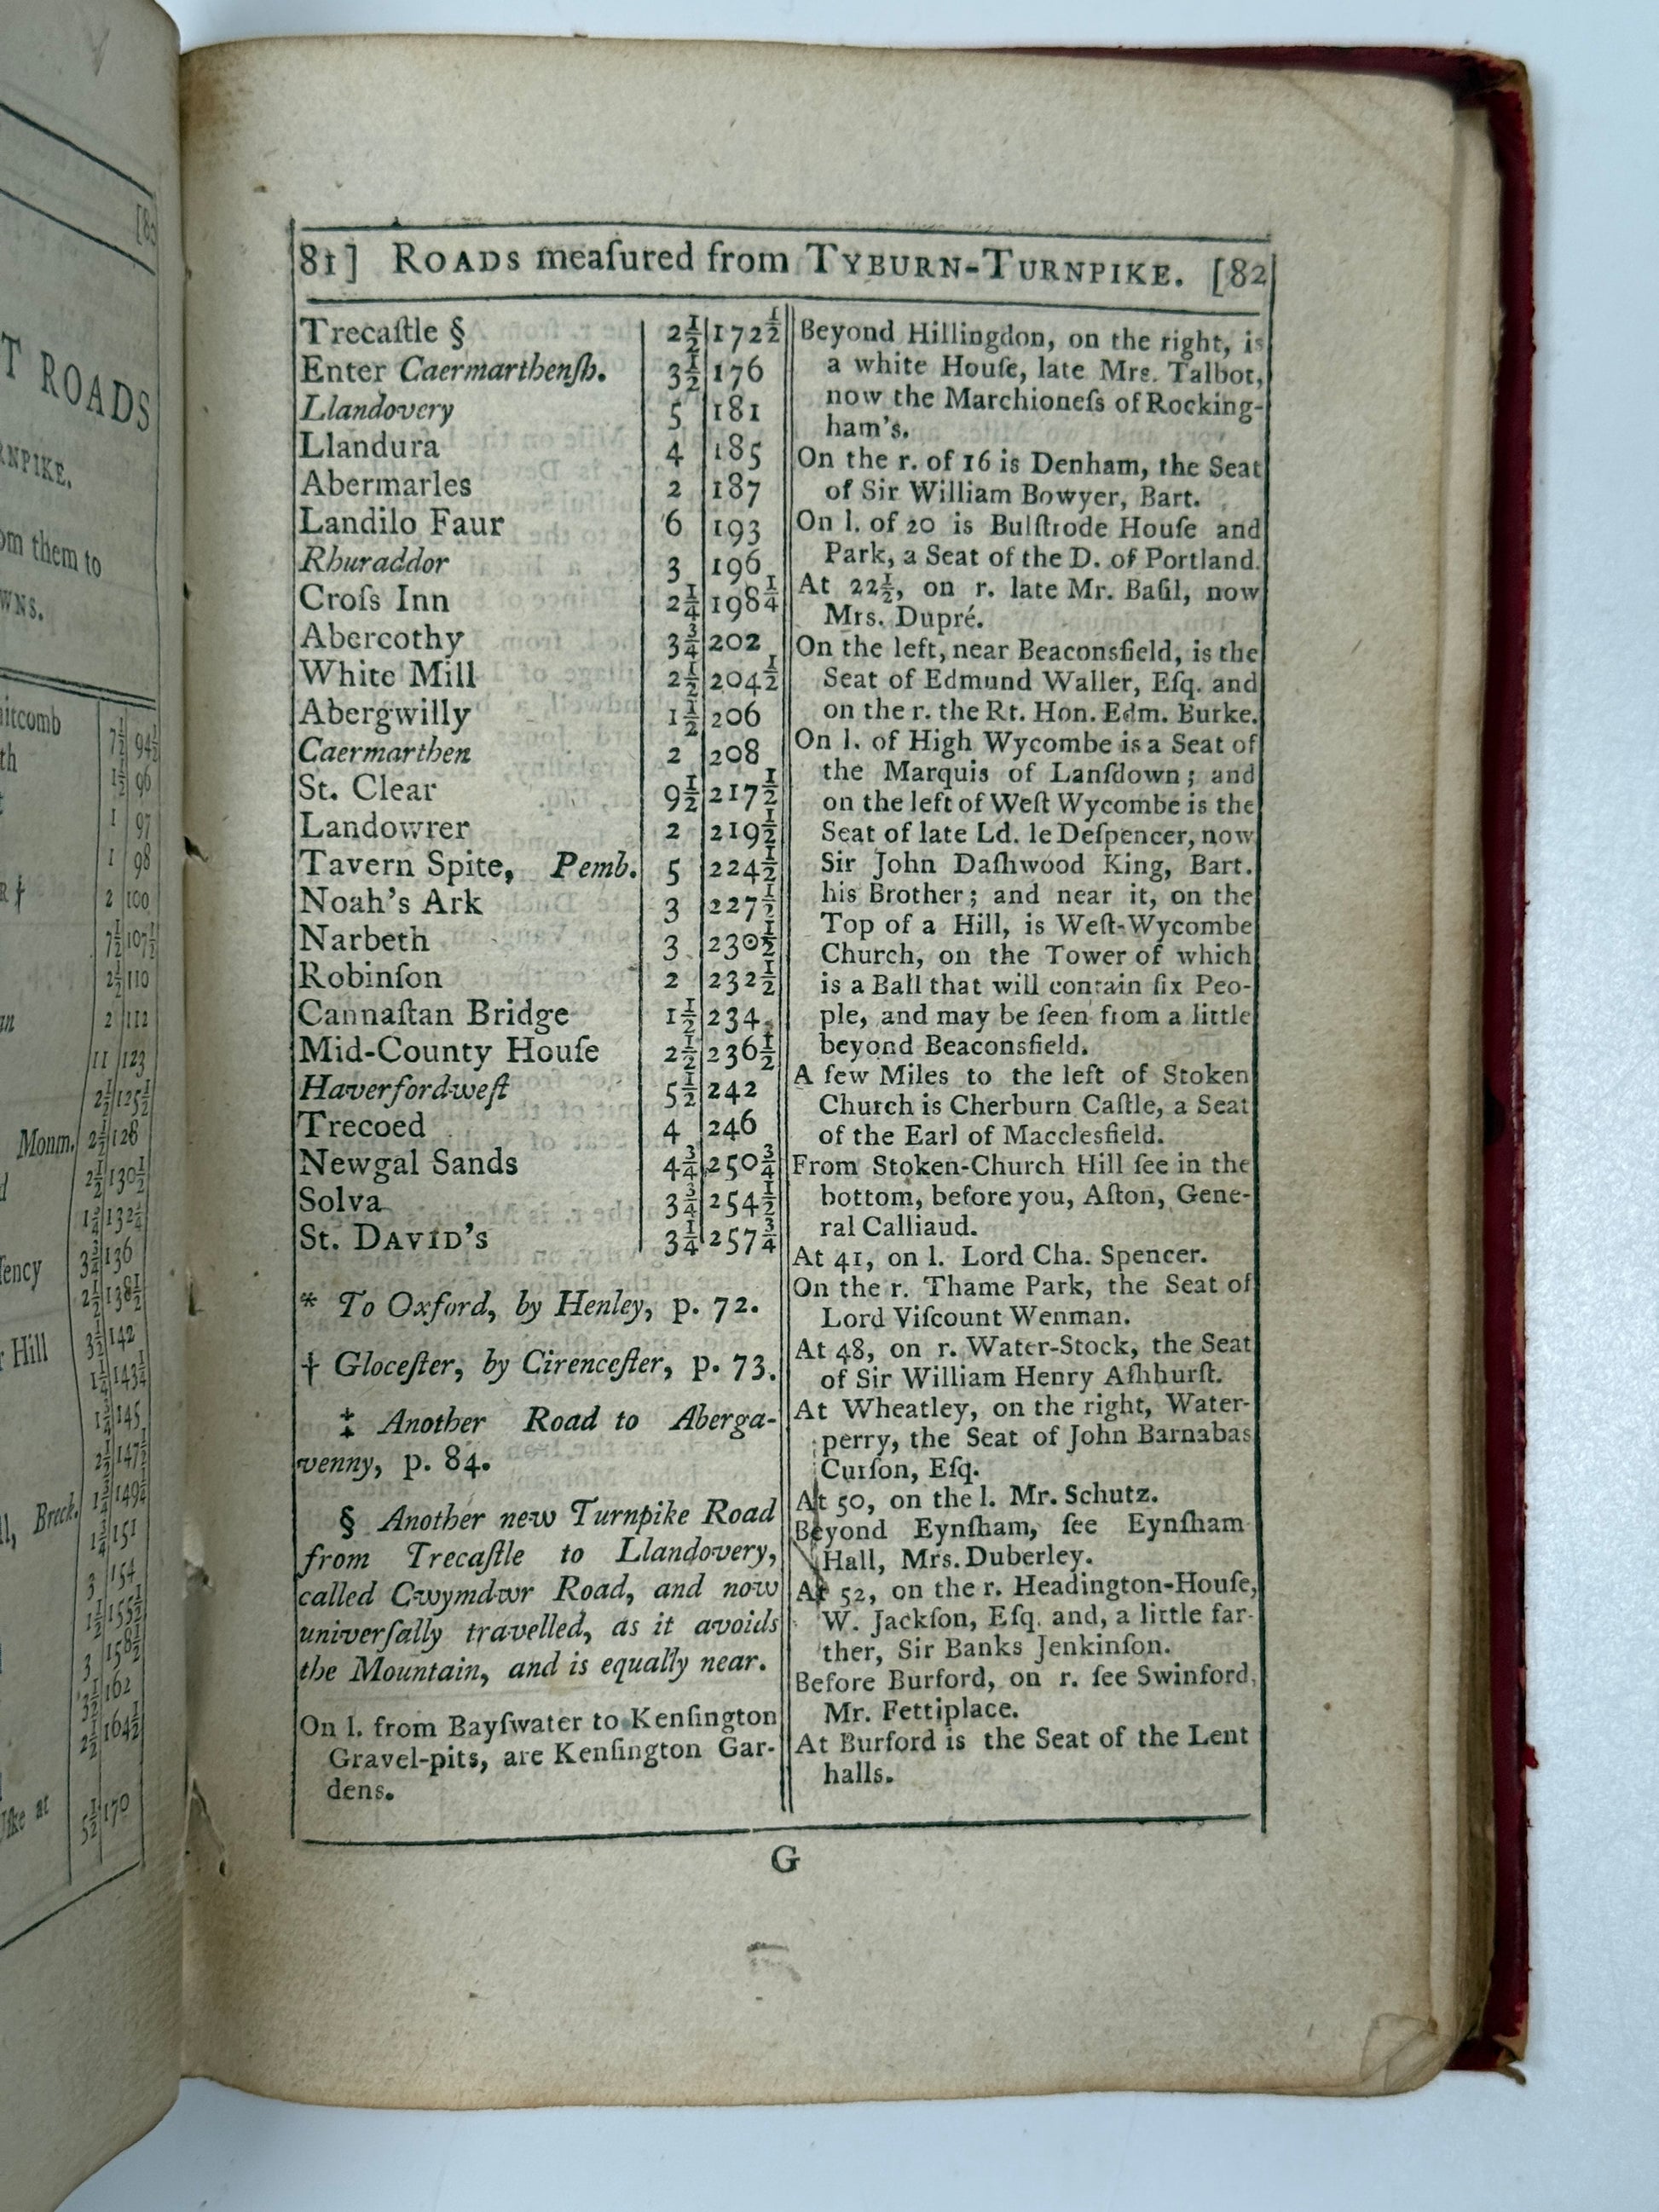 [8
T ROADS
RNPIKE.
om them to
WNS.
itcomb 7½ 94½
th 1½ 96
1 97
1 98
2 100
7½ 107½
2½ 110
2 112
11 123
2½ 125½
Monm. 2½ 128
2½ 130½
1¾ 132¼
3¾ 136
2½ 138½
Hill 3½ 142
1¼ 143¼
1¾ 145
2½ 147½
1¾ 149¼
Breck. 1¾ 151
3 154
1½ 155½
3 158½
3½ 162
2½ 164½
5½ 170
81] ROADS meaſured from TYBURN-TURNPIKE. [82
Trecaſtle § 2½ 172½
Enter Caermarthenſh. 3½ 176
Llandovery 5 181
Llandura 4 185
Abermarles 2 187
Landilo Faur 6 193
Rhuraddor 3 196
Croſs Inn 2¼ 198¼
Abercothy 3¾ 202
White Mill 2½ 204½
Abergwilly 1½ 206
Caermarthen 2 208
St. Clear 9½ 217½
Landowrer 2 219½
Tavern Spite, Pemb. 5 224½
Noah's Ark 3 227½
Narbeth 3 230½
Robinſon 2 232½
Cannaſtan Bridge 1½ 234
Mid-County Houſe 2½ 236½
Haverfordweſt 5½ 242
Trecoed 4 246
Newgal Sands 4¾ 250¾
Solva 3¾ 254½
St. DAVID'S 3¼ 257¾
* To Oxford, by Henley, p. 72.
† Gloceſter, by Cirenceſter, p. 73.
‡ Another Road to Aberga-
venny, p. 84.
§ Another new Turnpike Road
from Trecaſtle to Llandovery,
called Cwymdwr Road, and now
univerſally travelled, as it avoids
the Mountain, and is equally near.
On l. from Bayſwater to Kenſington
Gravel-pits, are Kenſington Gar-
dens.
Beyond Hillingdon, on the right, is
a white Houſe, late Mrs. Talbot,
now the Marchioneſs of Rocking-
ham's.
On the r. of 16 is Denham, the Seat
of Sir William Bowyer, Bart.
On l. of 20 is Bulſtrode Houſe and
Park, a Seat of the D. of Portland.
At 22½, on r. late Mr. Baſil, now
Mrs. Dupré.
On the left, near Beaconsfield, is the
Seat of Edmund Waller, Eſq. and
on the r. the Rt. Hon. Edm. Burke.
On l. of High Wycombe is a Seat of
the Marquis of Lanſdown; and
on the left of Weſt Wycombe is the
Seat of late Ld. le Deſpencer, now
Sir John Daſhwood King, Bart.
his Brother; and near it, on the
Top of a Hill, is Weſt-Wycombe
Church, on the Tower of which
is a Ball that will contain ſix Peo-
ple, and may be ſeen from a little
beyond Beaconsfield.
A few Miles to the left of Stoken
Church is Cherburn Caſtle, a Seat
of the Earl of Macclesfield.
From Stoken-Church Hill ſee in the
bottom, before you, Aſton, Gene-
ral Calliaud.
At 41, on l. Lord Cha. Spencer.
On the r. Thame Park, the Seat of
Lord Viſcount Wenman.
At 48, on r. Water-Stock, the Seat
of Sir William Henry Aſhhurſt.
At Wheatley, on the right, Water-
perry, the Seat of John Barnabas
Curſon, Eſq.
At 50, on the l. Mr. Schutz.
Beyond Eynſham, ſee Eynſham
Hall, Mrs. Duberley.
At 52, on the r. Headington-Houſe,
W. Jackſon, Eſq. and, a little far-
ther, Sir Banks Jenkinſon.
Before Burford, on r. ſee Swinford,
Mr. Fettiplace.
At Burford is the Seat of the Lent
halls.
G